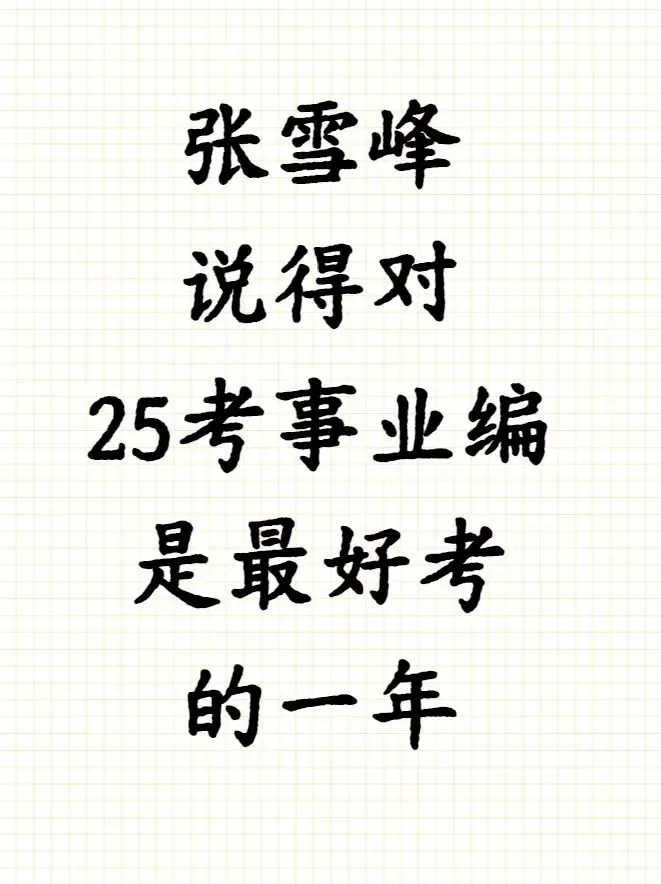 张雪峰
说得对
25考事业编
是最好考
的一年